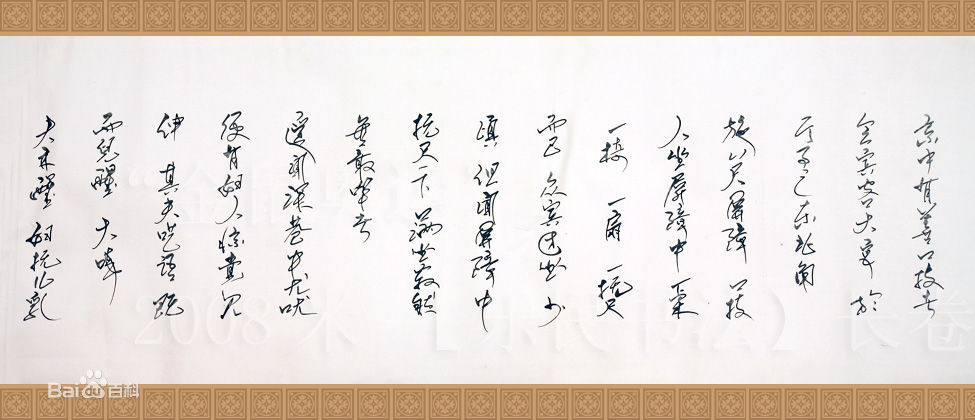 京中有善口技者
會賓客大宴 於
厅事之东北角
施八尺屏障 口技
人坐屏障中 一桌
一椅 一扇 一撫尺
而已 众賓团坐 少
頃 但聞屏障中
撫尺一下 满坐寂然
無敢哗者
遥聞深巷中犬吠
便有妇人惊觉欠
伸 其夫呓语 既
而兒醒 大啼
夫亦醒 妇撫儿乳
2008米【 书法】长卷
Baidu百科